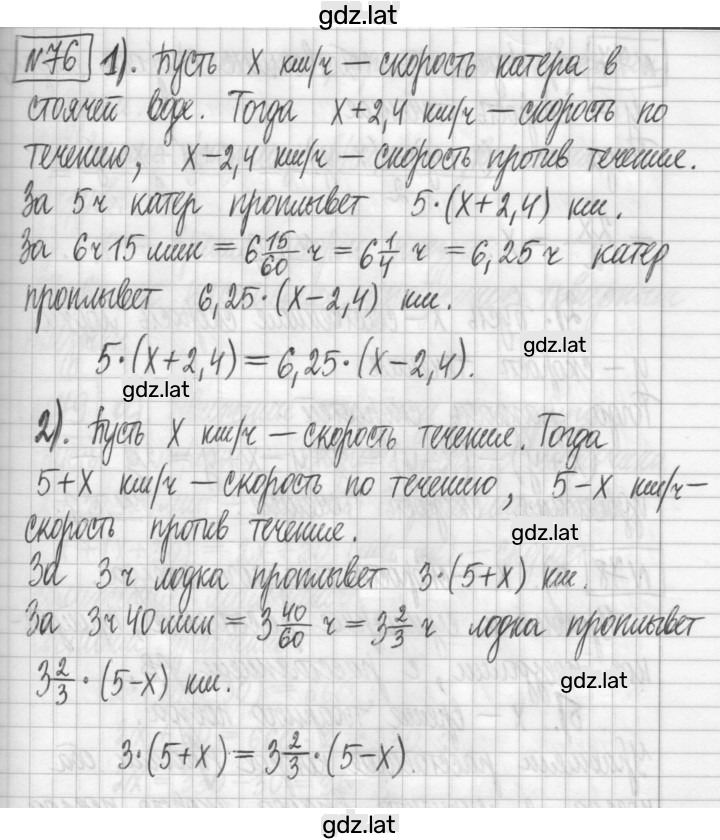 gdz.lat
№76 1). Пусть x км/ч — скорость катера в
стоячей воде. Тогда x+2,4 км/ч — скорость по
течению, x−2,4 км/ч — скорость против течения.
За 5ч катер проплывет 5·(x+2,4) км.
За 6ч 15 мин = 6 15/60 ч = 6 1/4 ч = 6,25 ч катер
проплывет 6,25·(x−2,4) км.
gdz.lat
5·(x+2,4) = 6,25·(x−2,4).
gdz.lat
2). Пусть x км/ч — скорость течения. Тогда
5+x км/ч — скорость по течению, 5−x км/ч —
скорость против течения.
gdz.lat
За 3ч лодка проплывет 3·(5+x) км.
За 3ч 40 мин = 3 40/60 ч = 3 2/3 ч лодка проплывет
3 2/3 · (5−x) км.
gdz.lat
3·(5+x) = 3 2/3 · (5−x).
gdz.lat